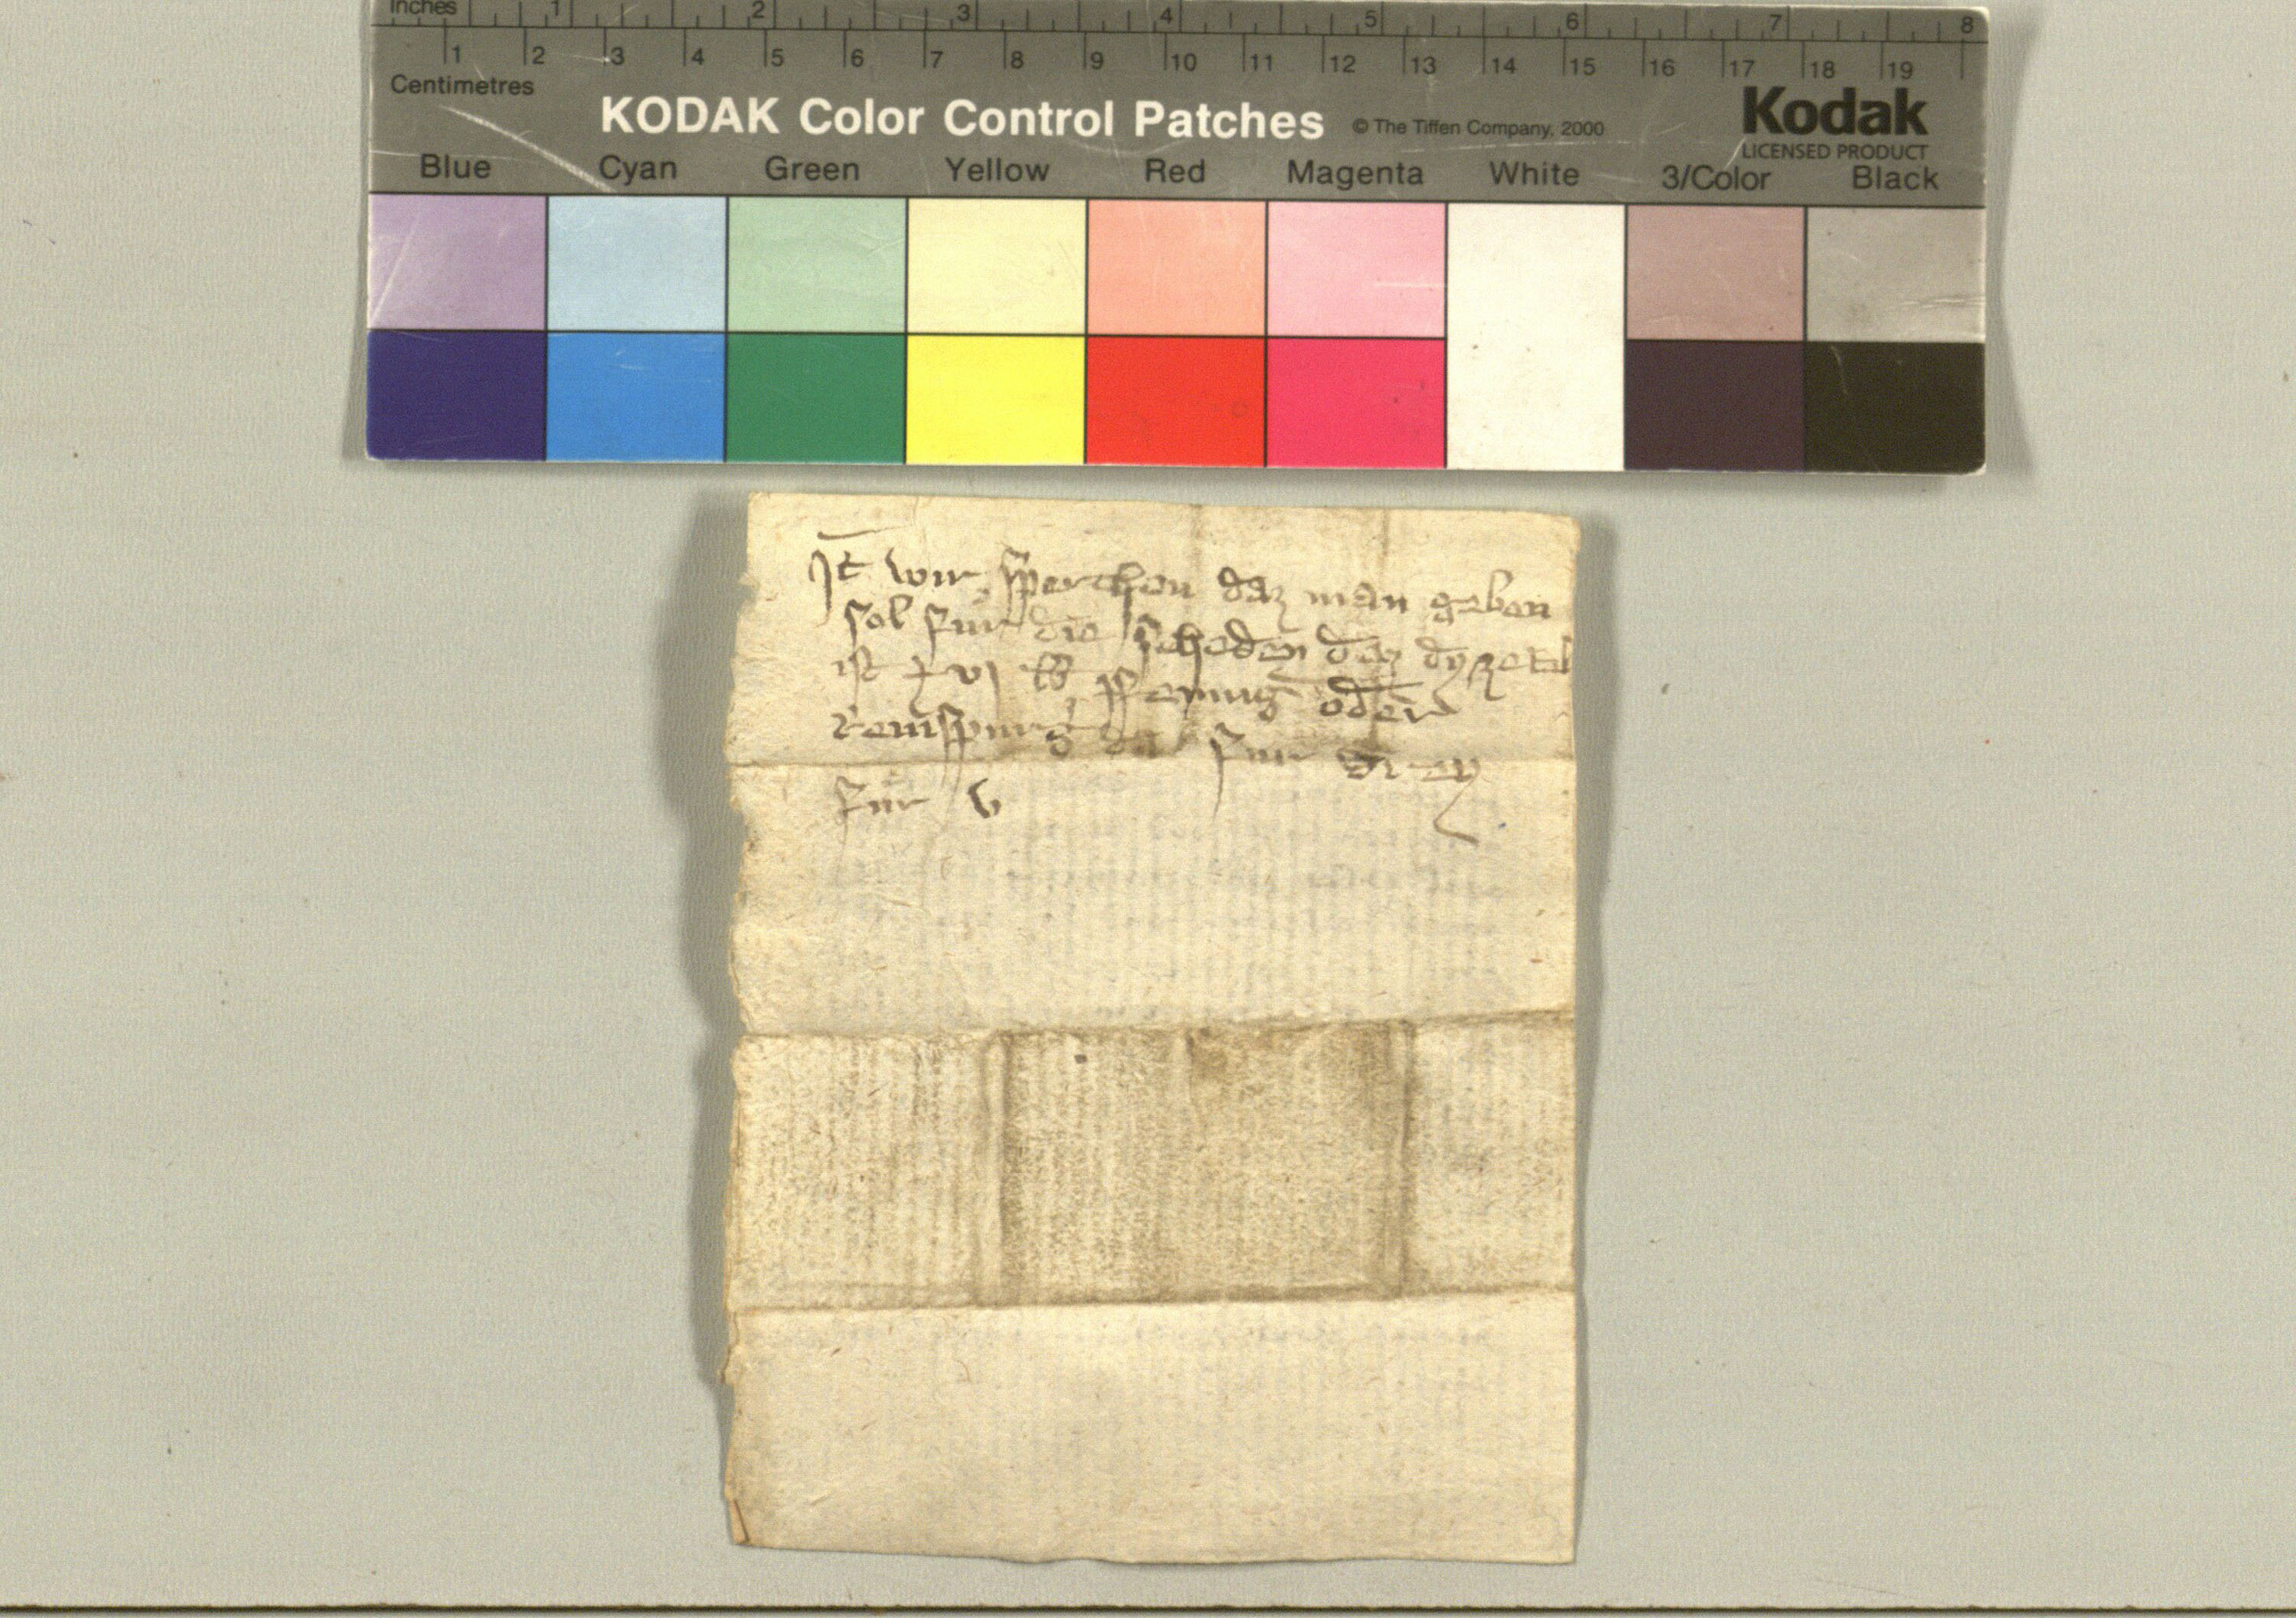 Inches 1 2 3 4 5 6 7 8
1 2 3 4 5 6 7 8 9 10 11 12 13 14 15 16 17 18 19
Centimetres
KODAK Color Control Patches © The Tiffen Company, 2000 Kodak
LICENSED PRODUCT
Blue Cyan Green Yellow Red Magenta White 3/Color Black
It wir sperchen daz man geben
sol für die scheden daz dy zetil
ist xvj lb pfenning oder
reinspurg der für drey
für v